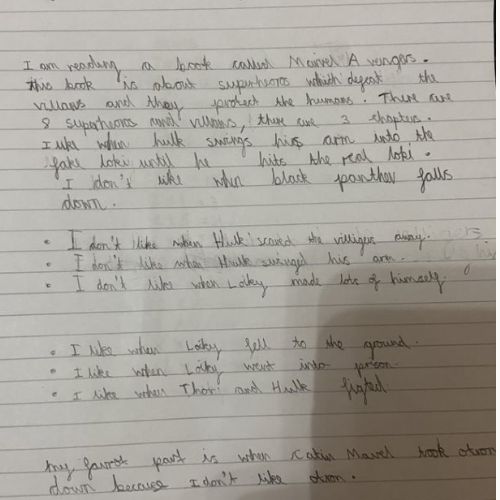 I am reading a book called Marvel Avengers.
this book is about superheros which defeat the
villans and they protect the humans. There are
8 superheroes and villans, there are 3 chapters.
I like when hulk swings his arm into the
fake loki until he hits the real loki.
I don't like when black panther falls
down.
• I don't like when Hulk scared the villigers away.
• I don't like when Hulk swinged his arm.
• I don't like when Lokey made lots of himself.
• I like when Lokey fell to the ground.
• I like when Lokey went into prison.
• I like when Thor and Hulk figted
my favrot part is when Catin Mavel took otron
down because I don't like otron.